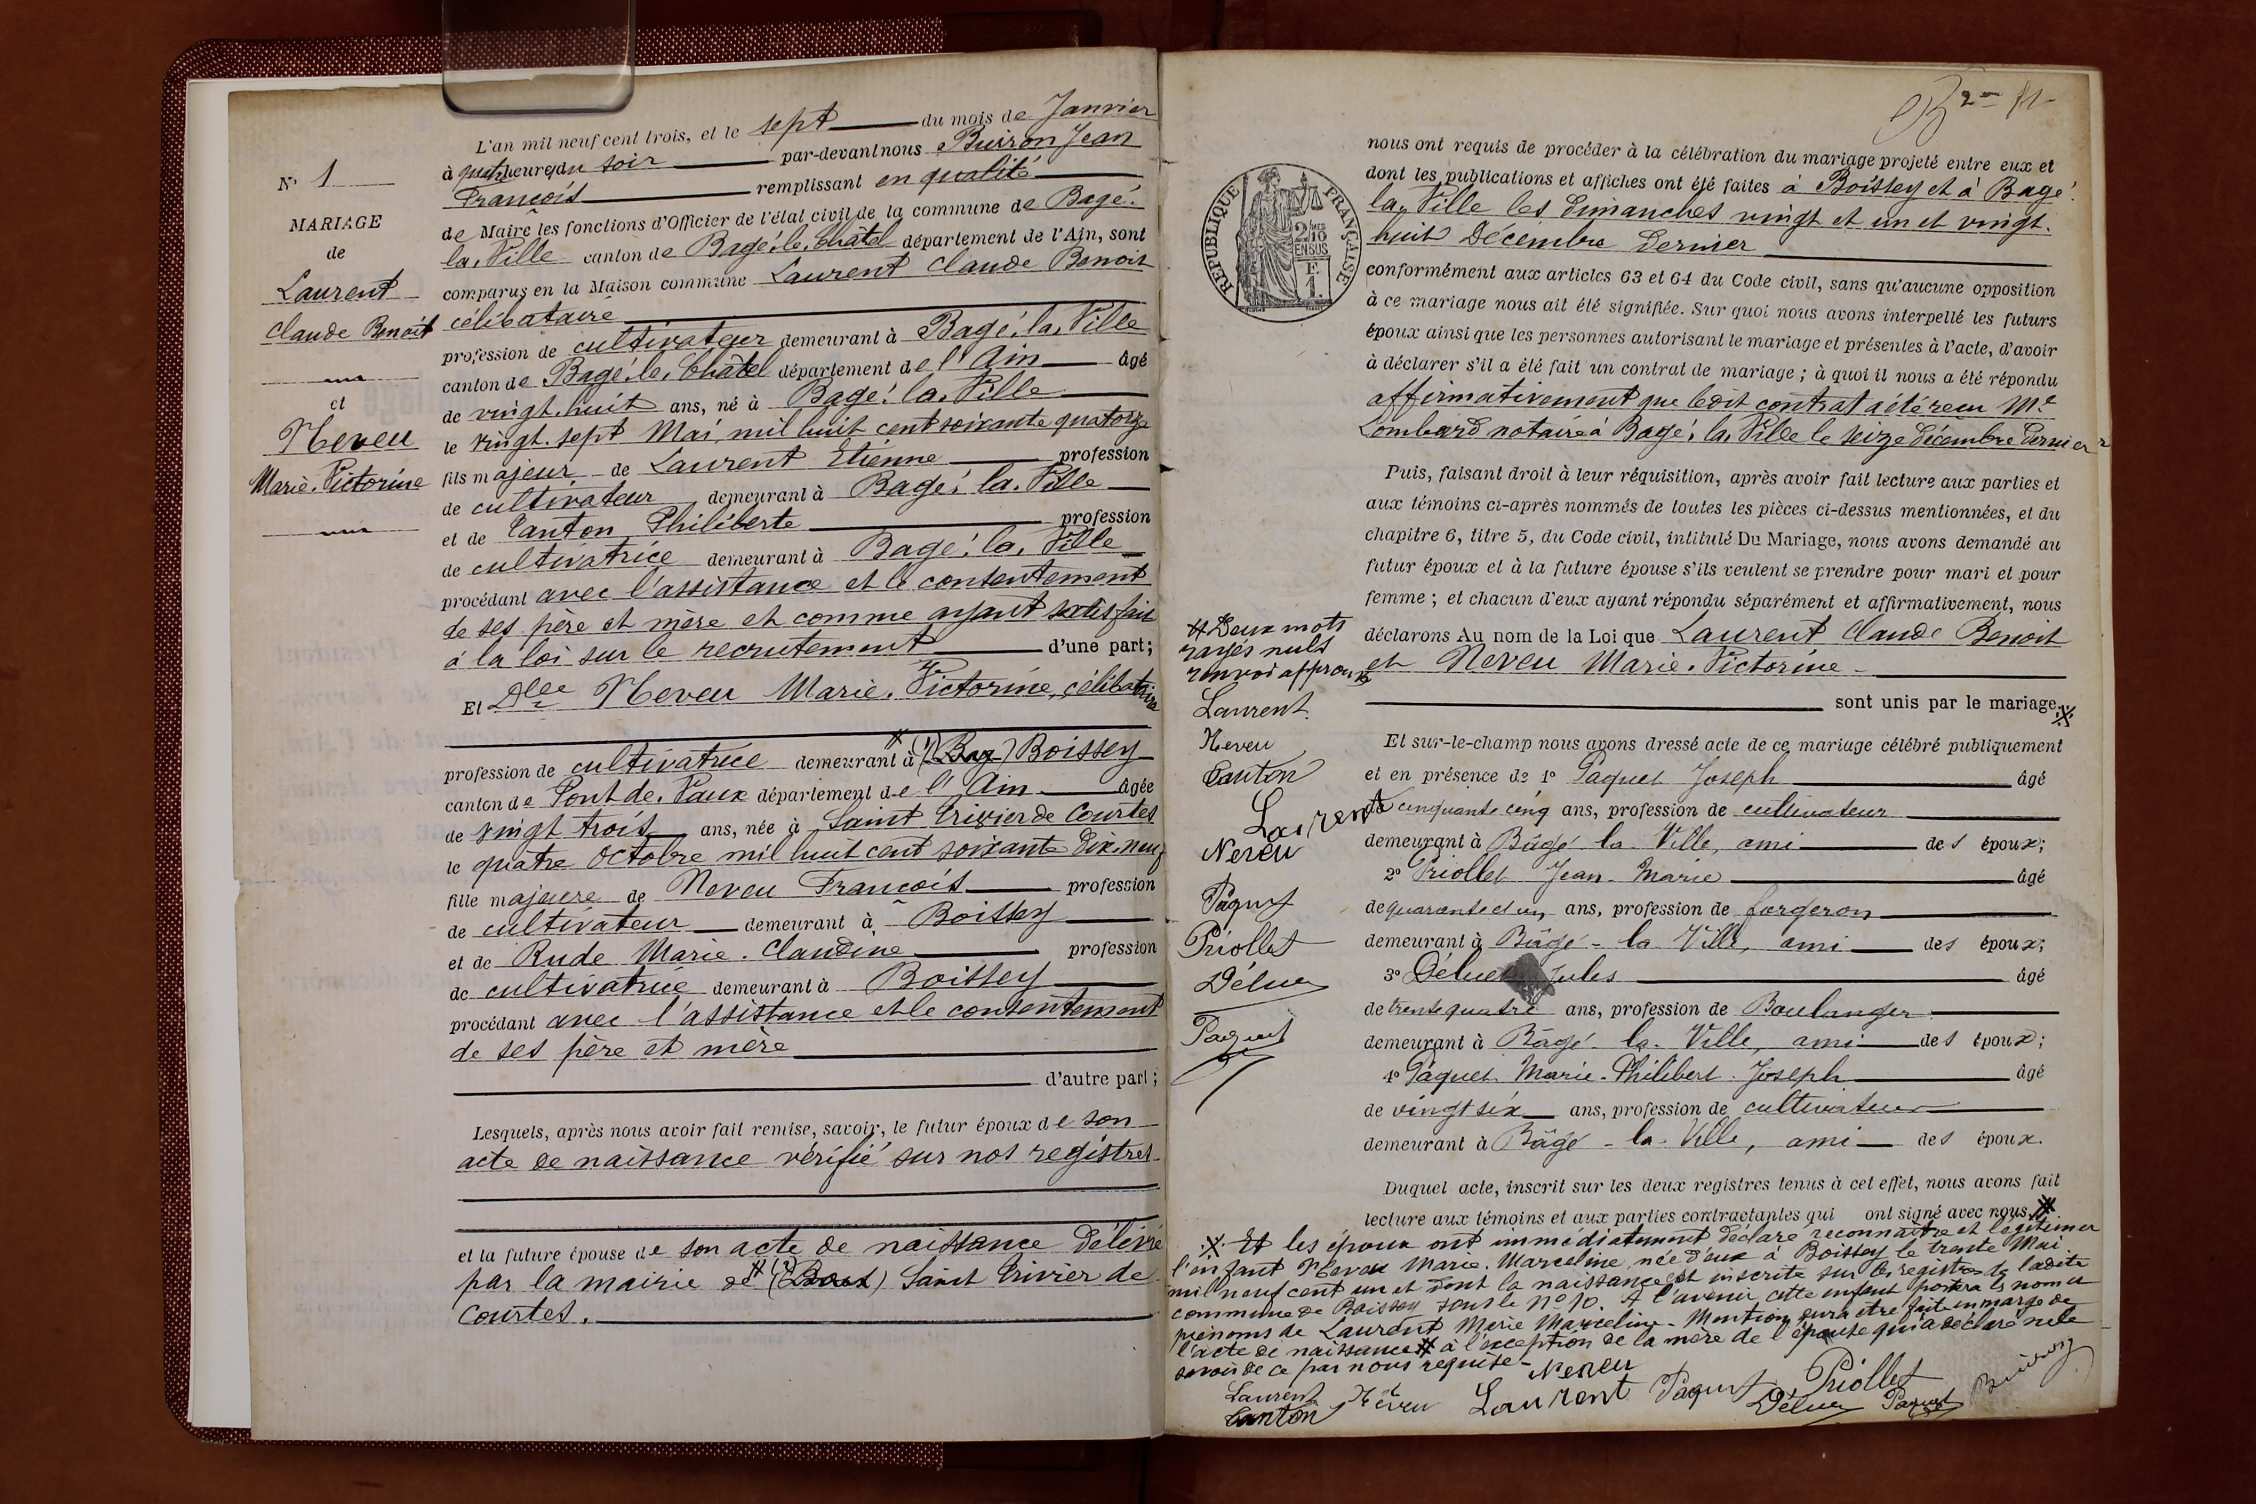 N° 1
MARIAGE
de
Laurent
Claude Benoit
et
Neveu
Marie-Victorine
L'an mil neuf cent trois, et le sept du mois de Janvier
à quatre heures du soir par-devant nous Buiron Jean
François remplissant en qualité
de Maire les fonctions d'Officier de l'état civil de la commune de Bagé-
la-Ville canton de Bagé-le-Châtel département de l'Ain, sont
comparus en la Maison commune Laurent Claude Benoit
célibataire
profession de cultivateur demeurant à Bagé-la-Ville
canton de Bagé-le-Châtel département de l'Ain âgé
de vingt-huit ans, né à Bagé-la-Ville
le vingt-sept Mai mil huit cent soixante quatorze
fils majeur de Laurent Etienne profession
de cultivateur demeurant à Bagé-la-Ville
et de Canton Philiberte profession
de cultivatrice demeurant à Bagé-la-Ville
procédant avec l'assistance et le consentement
de ses père et mère et comme ayant satisfait
à la loi sur le recrutement d'une part;
Et Dlle Neveu Marie-Victorine, célibataire
profession de cultivatrice demeurant à (1) (Bag) Boissey
canton de Pont-de-Vaux département de l'Ain âgée
de vingt trois ans, née à Saint Trivier de Courtes
le quatre Octobre mil huit cent soixante dix-neuf
fille majeure de Neveu François profession
de cultivateur demeurant à Boissey
et de Rude Marie-Claudine profession
de cultivatrice demeurant à Boissey
procédant avec l'assistance et le consentement
de ses père et mère
d'autre part;
Lesquels, après nous avoir fait remise, savoir, le futur époux de son
acte de naissance vérifié sur nos registres
et la future épouse de son acte de naissance délivré
par la mairie de (1) Saint Trivier de
Courtes.
2
RÉPUBLIQUE FRANÇAISE
2/10 EN SUS
F. 1.
nous ont requis de procéder à la célébration du mariage projeté entre eux et
dont les publications et affiches ont été faites à Boissey et à Bagé-
la-Ville les dimanches vingt et un et vingt-
huit Décembre dernier
conformément aux articles 63 et 64 du Code civil, sans qu'aucune opposition
à ce mariage nous ait été signifiée. Sur quoi nous avons interpellé les futurs
époux ainsi que les personnes autorisant le mariage et présentes à l'acte, d'avoir
à déclarer s'il a été fait un contrat de mariage; à quoi il nous a été répondu
affirmativement que ledit contrat a été reçu Me
Lombard notaire à Bagé-la-Ville le seize Décembre dernier
Puis, faisant droit à leur réquisition, après avoir fait lecture aux parties et
aux témoins ci-après nommés de toutes les pièces ci-dessus mentionnées, et du
chapitre 6, titre 5, du Code civil, intitulé Du Mariage, nous avons demandé au
futur époux et à la future épouse s'ils veulent se prendre pour mari et pour
femme; et chacun d'eux ayant répondu séparément et affirmativement, nous
déclarons Au nom de la Loi que Laurent Claude Benoit
et Neveu Marie-Victorine
sont unis par le mariage.
Et sur-le-champ nous avons dressé acte de ce mariage célébré publiquement
et en présence de 1° Paquet Joseph âgé
de cinquante cinq ans, profession de cultivateur
demeurant à Bâgé-la-Ville, ami des époux;
2° Priollet Jean-Marie âgé
de quarante et un ans, profession de forgeron
demeurant à Bâgé-la-Ville, ami des époux;
3° Jules âgé
de trente quatre ans, profession de Boulanger
demeurant à Bâgé-la-Ville, ami des époux;
4° Paquet Marie-Philibert-Joseph âgé
de vingt six ans, profession de cultivateur
demeurant à Bâgé-la-Ville, ami des époux.
Duquel acte, inscrit sur les deux registres tenus à cet effet, nous avons fait
lecture aux témoins et aux parties contractantes qui ont signé avec nous #
Et les époux ont immédiatement déclaré reconnaître et légitimer
l'enfant Neveu Marie-Marceline née d'eux à Boissey le trente Mai
mil neuf cent un et dont la naissance est inscrite sur les registres de ladite
commune de Boissey sous le N° 10. A l'avenir cette enfant portera les nom et
prénoms de Laurent Marie Marceline. Mention sera être faite en marge de
l'acte de naissance # à l'exception de la mère de l'épouse qui a déclaré ne le
savoir de ce par nous requise.
# Deux mots
rayés nuls
renvoi approuvé
Laurent
Neveu
Canton
Laurent
Neveu
Paquet
Priollet
Paquet
Laurent Neveu Neveu Laurent Paquet Priollet
Canton Paquet Buiron